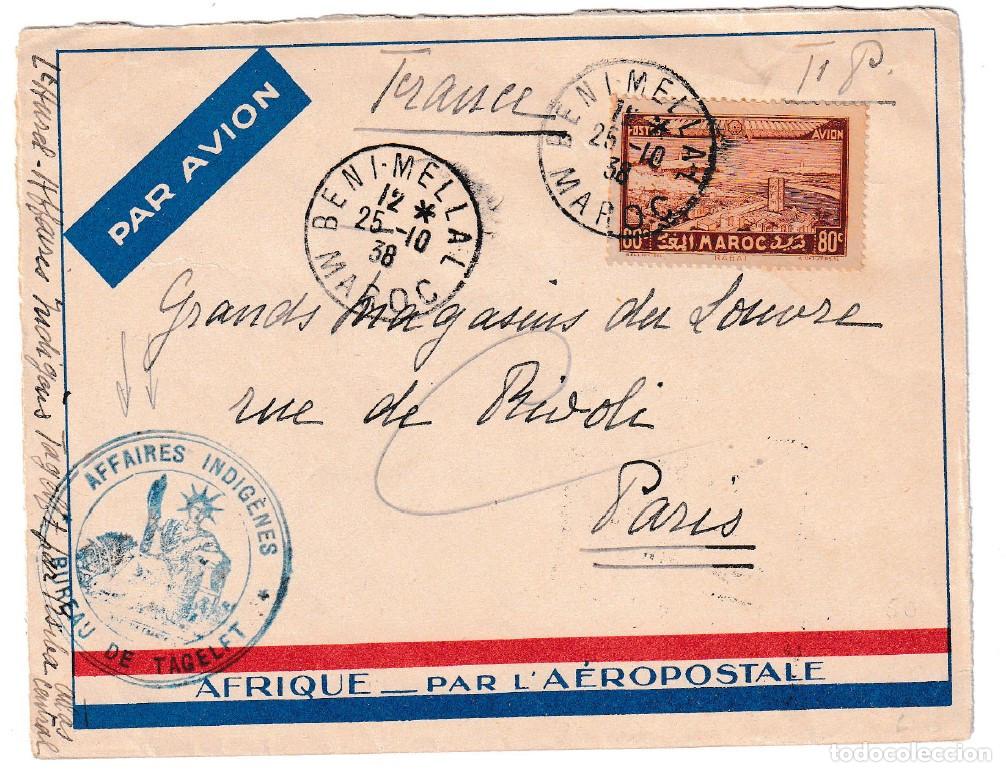 France
T P.
PAR AVION
BENI-MELLAL
12 *
25-10
38
MAROC
BENI-MELLAL
*
25-10
38
MAROC
POSTE AVION
80c MAROC 80c
RABAT
Grands Magasins du Louvre
rue de Rivoli
Paris
AFFAIRES INDIGÈNES
BUREAU DE TAGELFT *
AFRIQUE — PAR L'AÉROPOSTALE
Affaires Indigènes Tagelft par
central
todocoleccion